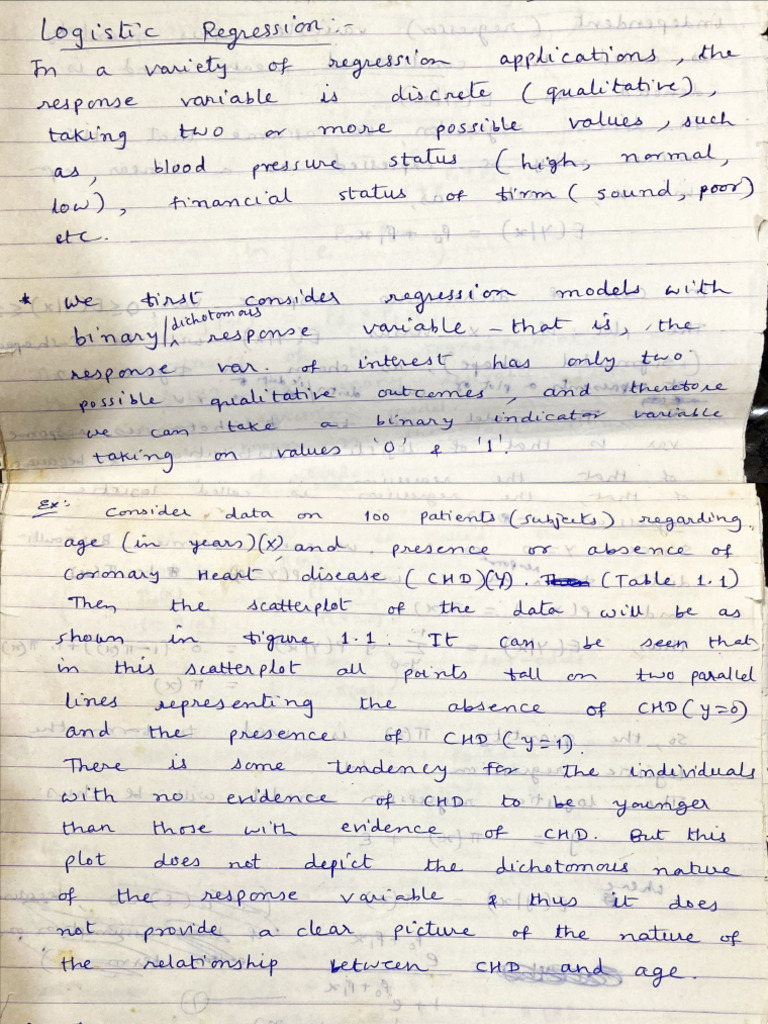 Logistic Regression:-
In a variety of regression applications, the
response variable is discrete (qualitative),
taking two or more possible values, such
as, blood pressure status (high, normal,
low), financial status of firm (sound, poor)
etc.
* we first consider regression models with
binary/dichotomous response variable - that is, the
response var. of interest has only two
possible qualitative outcomes, and therefore
we can take a binary indicator variable
taking on values '0' & '1'.
Ex: Consider data on 100 patients (subjects) regarding
age (in years)(x) and presence or absence of
Coronary Heart disease (CHD)(Y). (Table 1.1)
Then the scatterplot of the data will be as
shown in figure 1.1. It can be seen that
in this scatterplot all points fall on two parallel
lines representing the absence of CHD (y=0)
and the presence of CHD (y=1).
There is some tendency for the individuals
with no evidence of CHD to be younger
than those with evidence of CHD. But this
plot does not depict the dichotomous nature
of the response variable & thus it does
not provide a clear picture of the nature of
the relationship between CHD and age.